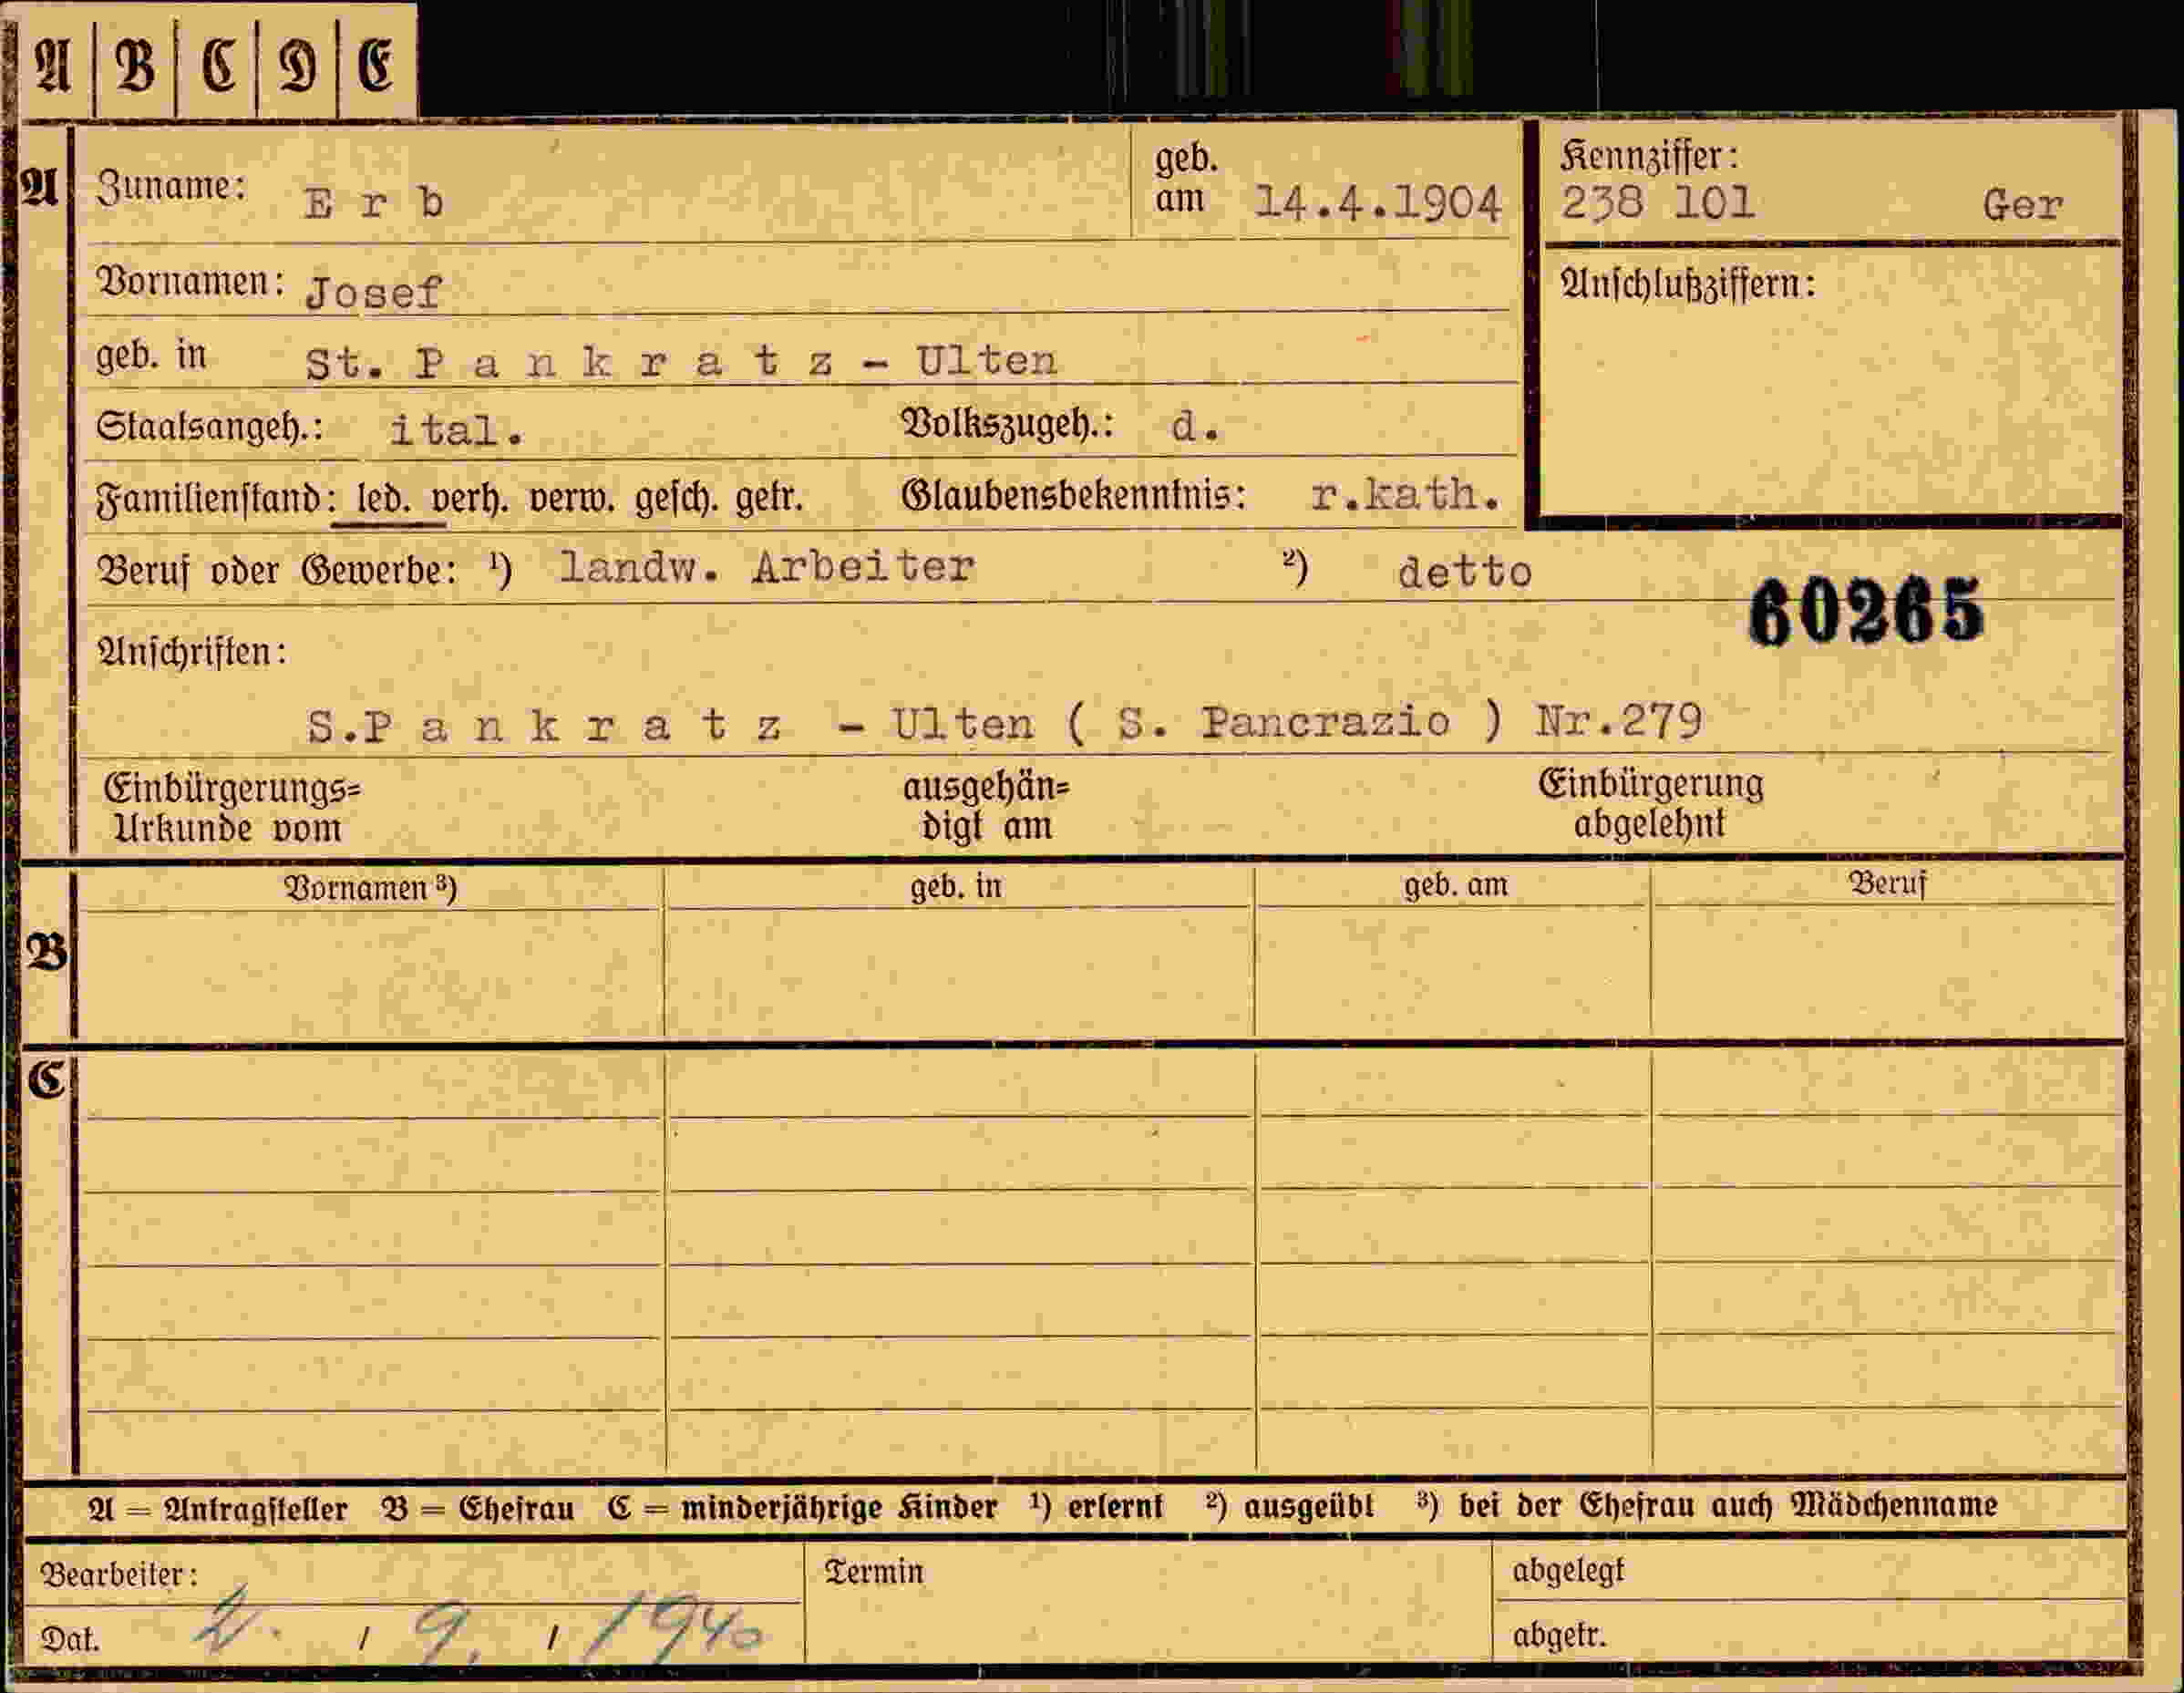 A B C D E
A Zuname: Erb geb. am 14.4.1904 Kennziffer: 238 101 Ger
Vornamen: Josef Anschlußziffern:
geb. in St. Pankratz - Ulten
Staatsangeh.: ital. Volkszugeh.: d.
Familienstand: led. verh. verw. gesch. getr. Glaubensbekenntnis: r.kath.
Beruf oder Gewerbe: ¹) landw. Arbeiter ²) detto
60265
Anschriften:
S.Pankratz - Ulten ( S. Pancrazio ) Nr.279
Einbürgerungs= ausgehän= Einbürgerung
Urkunde vom digt am abgelehnt
B Vornamen ³) geb. in geb. am Beruf
C
A = Antragsteller B = Ehefrau C = minderjährige Kinder ¹) erlernt ²) ausgeübt ³) bei der Ehefrau auch Mädchenname
Bearbeiter: Termin abgelegt
Dat. 2. / 9. / 1940 abgetr.